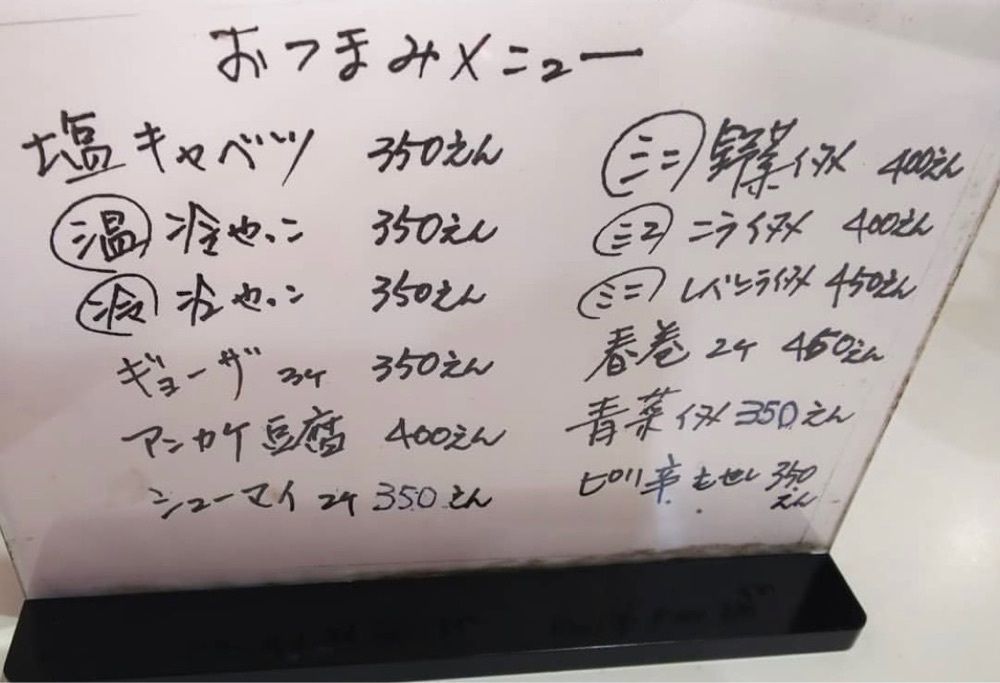 おつまみメニュー
塩キャベツ 350えん
温 冷やっこ 350えん
冷 冷やっこ 350えん
ギョーザ 3ケ 350えん
アンカケ豆腐 400えん
シューマイ 2ケ 350えん
ミニ 野菜イタメ 400えん
ミニ ニライタメ 400えん
ミニ レバニライタメ 450えん
春巻 2ケ 450えん
青菜イタメ 350えん
ピリ辛もやし 350えん